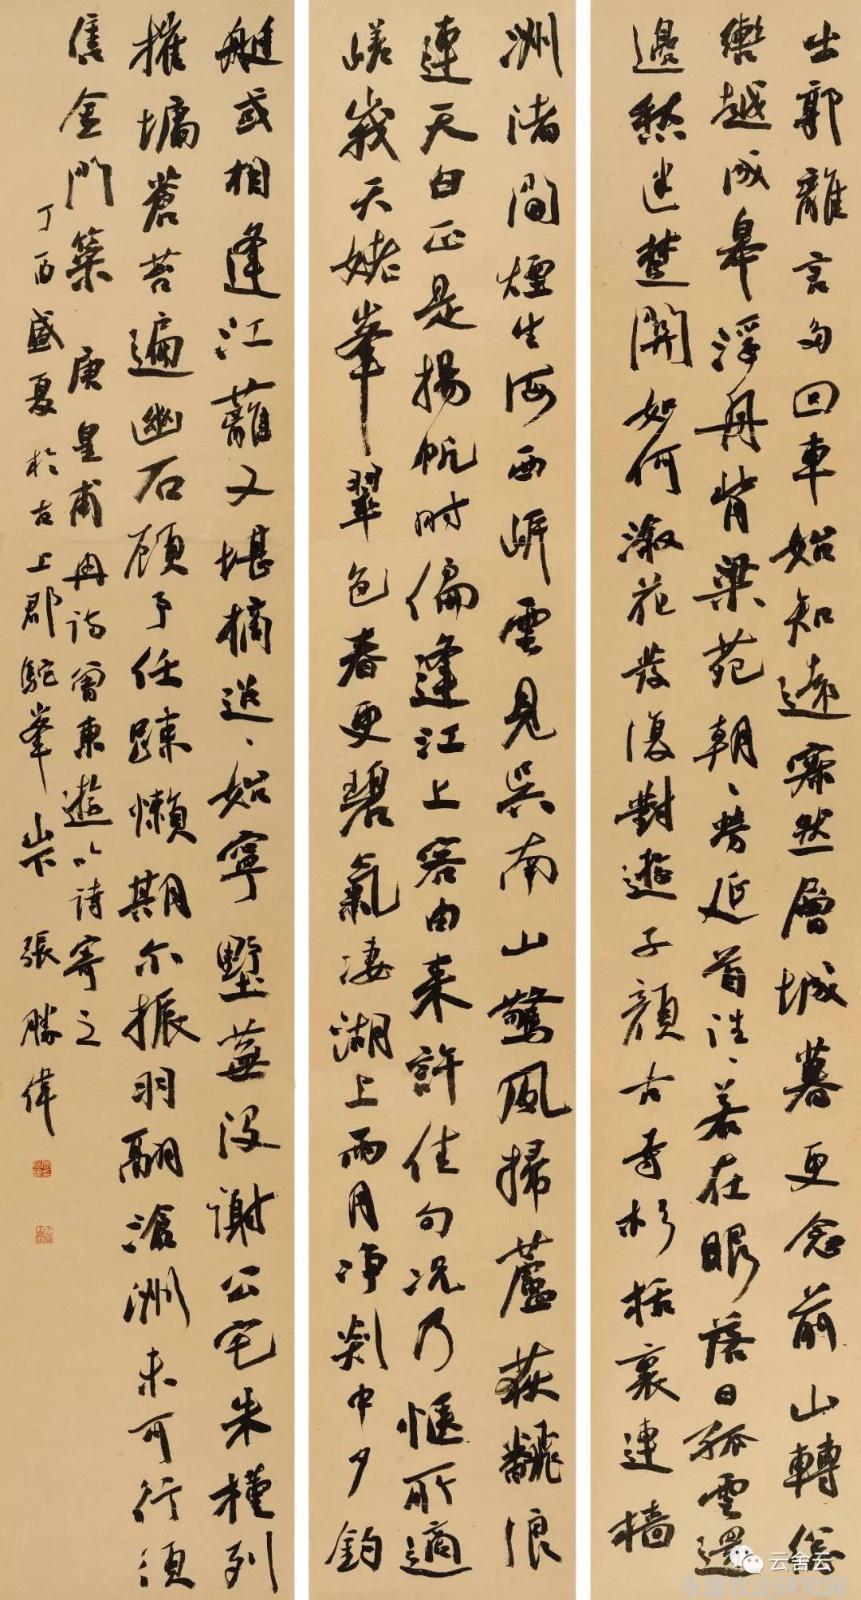 出郭離言多回車始知遠寂然層城暮更念前山轉總
轡越成皋浮舟背梁苑朝〻勞延首往〻若在眼落日孤雲還
邊愁迷楚關如何淑花發復對遊子顏古寺杉栝裏連檣
洲渚間煙生海西岸雲見吳南山驚風掃蘆荻飜浪
連天白正是揚帆時偏逢江上客由来許佳句況乃愜所適
嵯峩天姥峯翠色春更碧氣凄湖上雨月淨剡中夕釣
艇或相逢江蘺又堪摘迢〻始寧墅蕪沒謝公宅朱槿列
摧墉蒼苔遍幽石顧予任疎懶期尒振羽翮滄洲未可行須
售金門策 唐皇甫冉詩曾東遊以詩寄之
丁酉盛夏於古上郡駝峯山下 張勝偉
云舍云